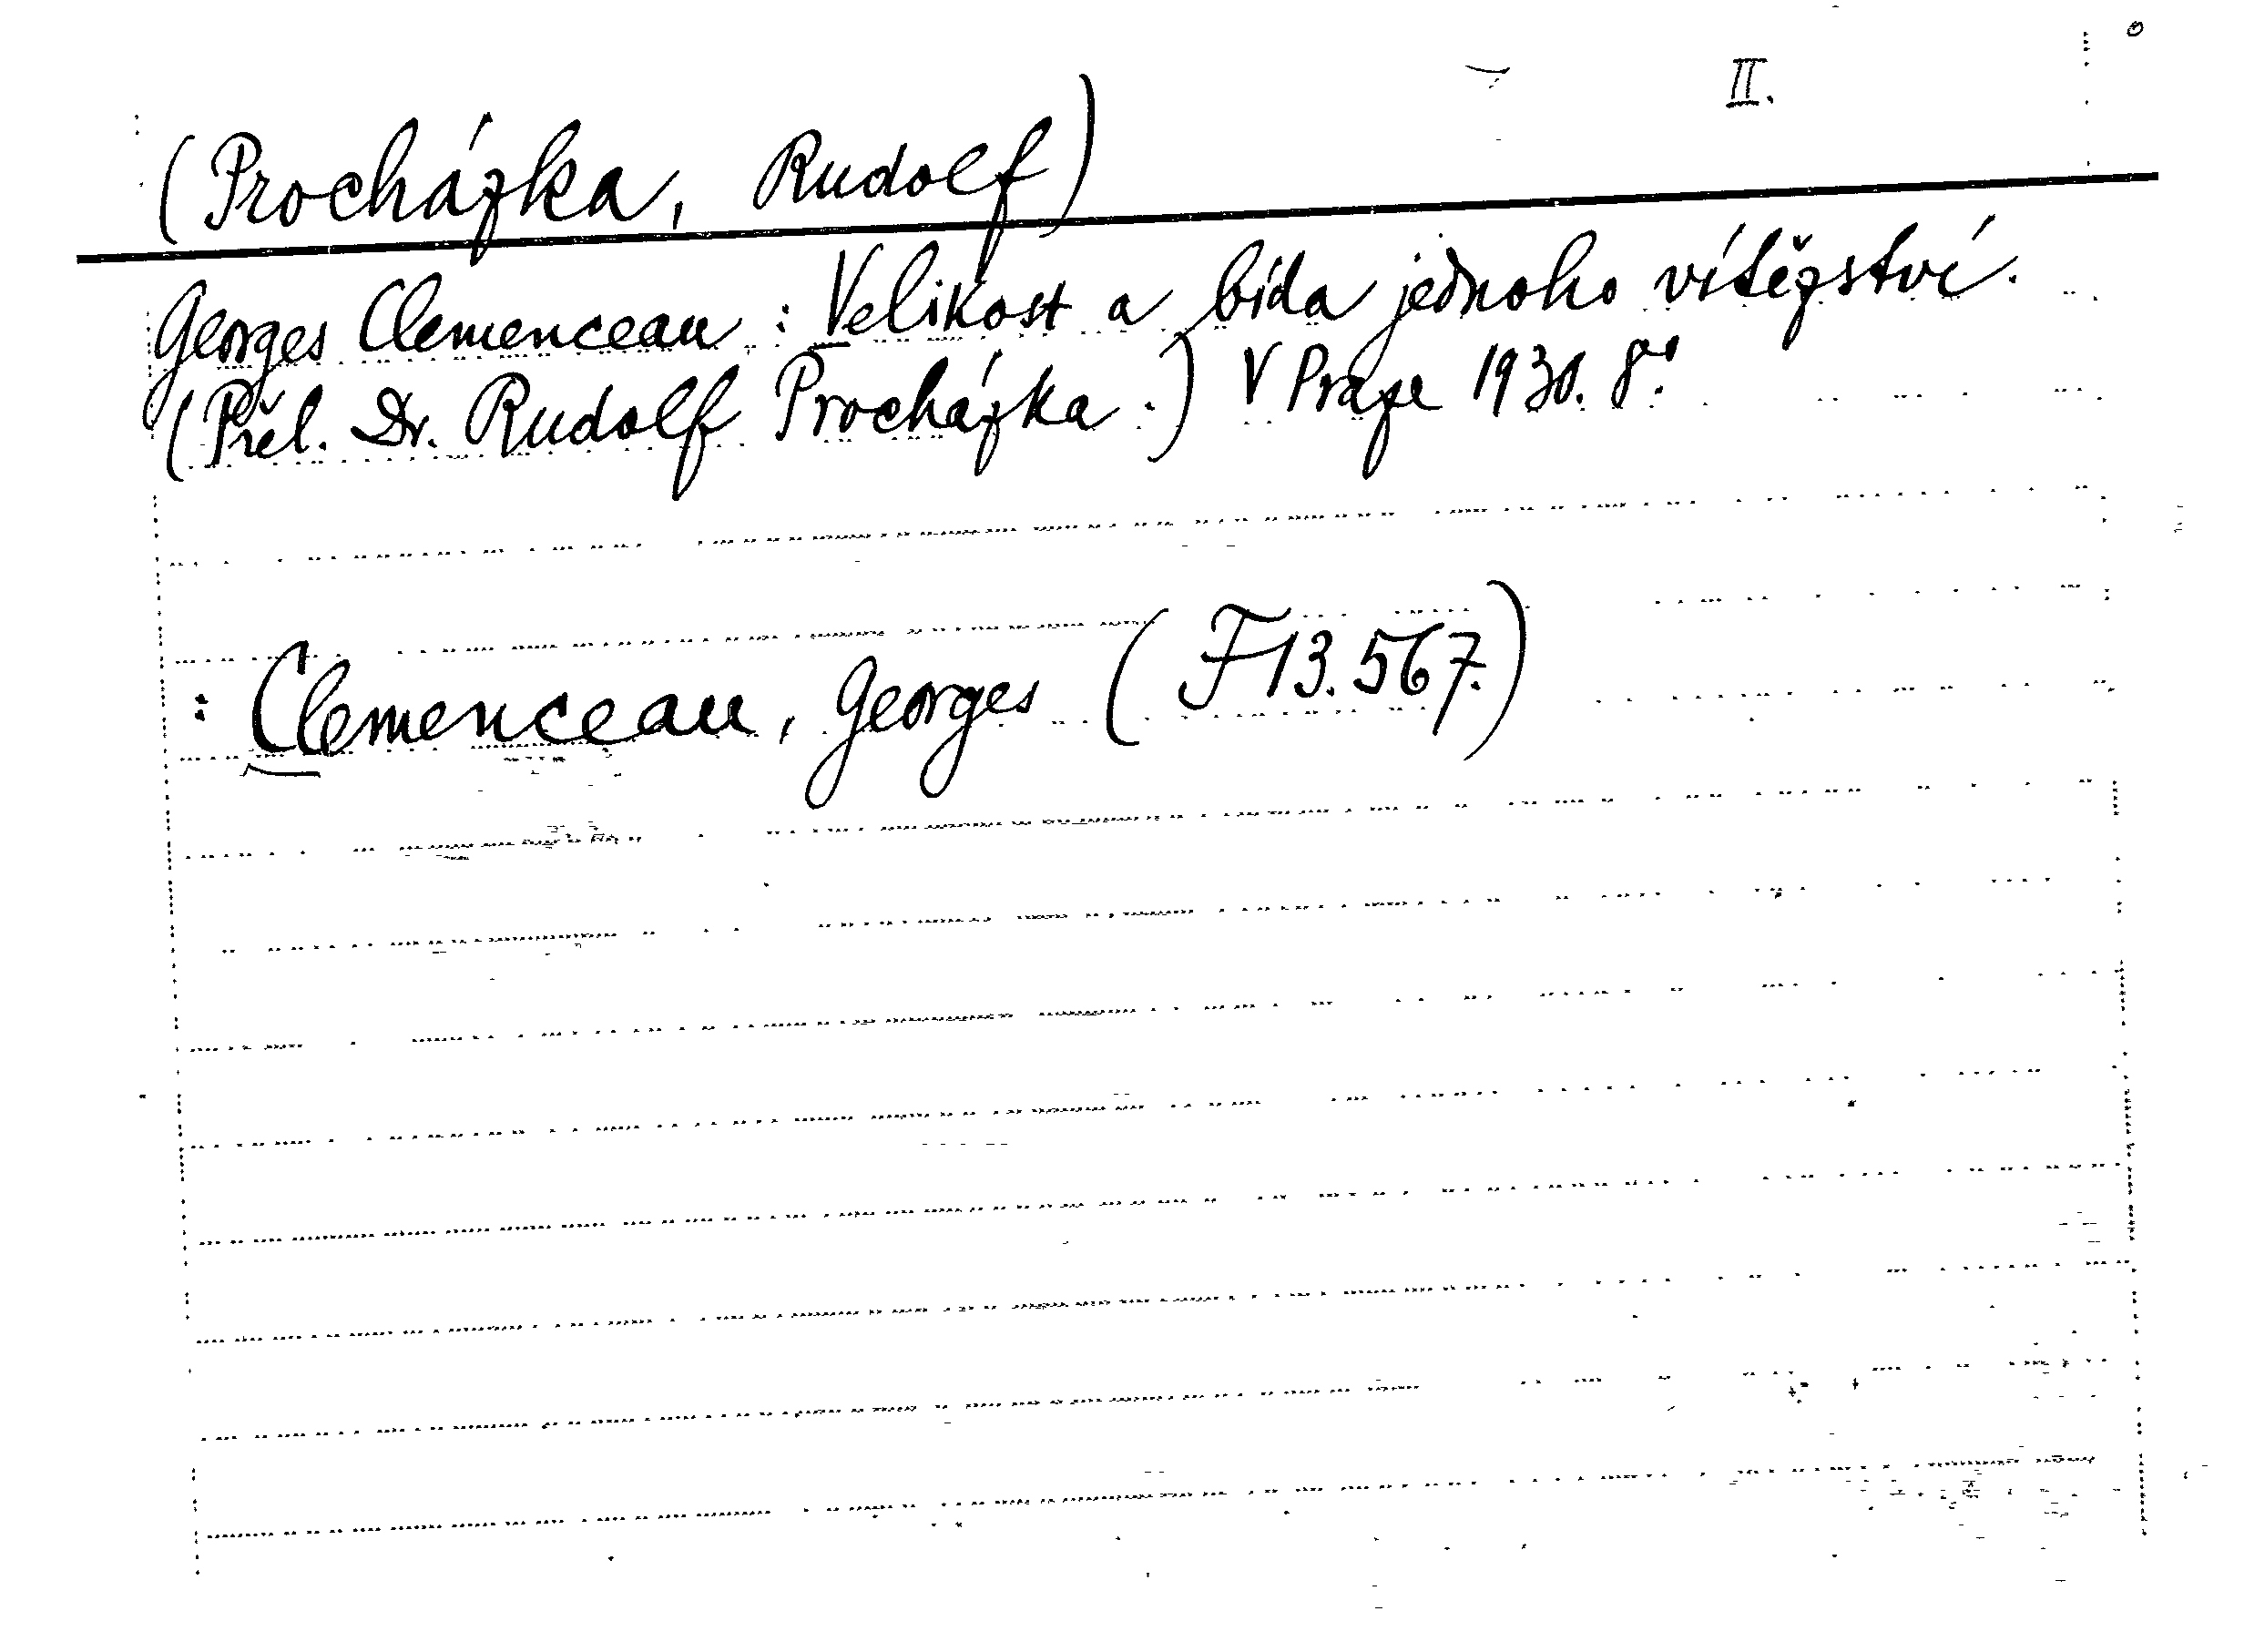 II.
(Procházka, Rudolf)
Georges Clemenceau : Velikost a bída jednoho vítězství.
(Přel. Dr. Rudolf Procházka.) V Praze 1930. 8°.
: Clemenceau, Georges (F 13.567.)